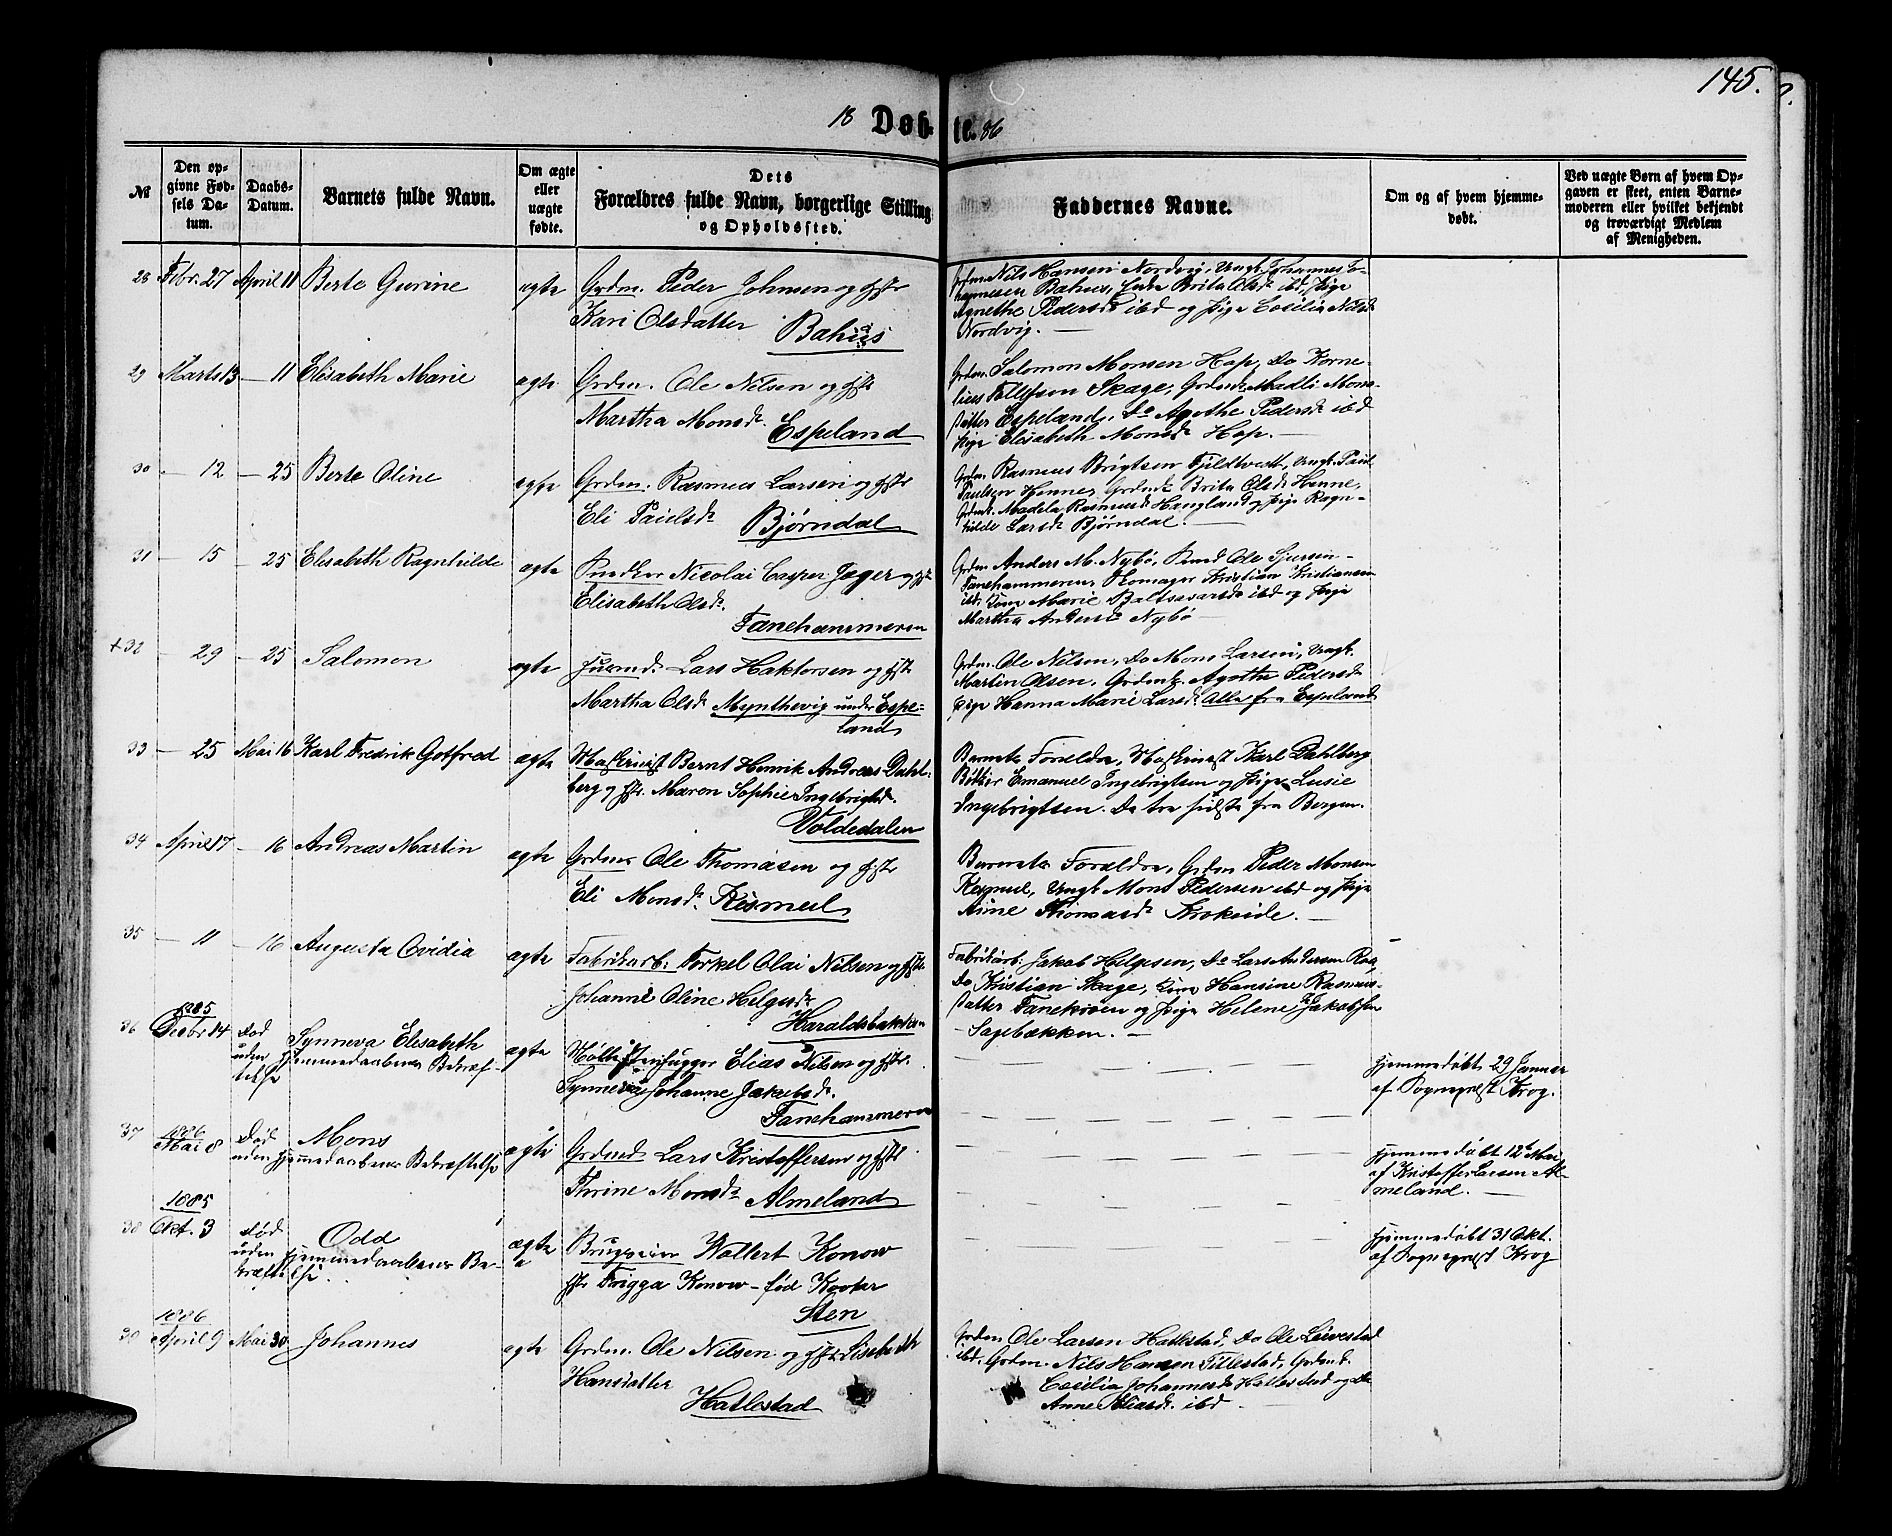 145.
18 Døbte. 86
№
Den opgivne Fødsels Datum.
Daabs-Datum.
Barnets fulde Navn.
Om ægte eller uægte fødte.
Dets Forældres fulde Navn, borgerlige Stilling og Opholdssted.
Faddernes Navne.
Om og af hvem hjemmedøbt.
Ved uægte Børn af hvem Opgaven er skeet, enten Barnemoderen eller hvilket bekjendt og troværdigt Medlem af Menigheden.
28 Febr. 27 April 11 Berte Gurine ægte Grdm. Peder Johnsen og Hstr
Kari Olsdatter Bahus
Grdm. Nils Hansen Nordvig, Ungk. Johannes Jo-
hannesen Bahus, Enke Brita Olsd. ibd, Pige
Agnethe Pedersd ibd og Pige Cecilia Nilsd
Nordvig. —
29 Marts 13 — 11 Elisabeth Marie ægte Grdm. Ole Nilsen og Hstr
Martha Monsd. Espeland
Grdm. Salomon Monsen Hop, Do Korne-
lius Tollefson Skage, Grdmk. Madli Mons-
datter Espeland, Do Agothe Pedersd. ibd
Pige Elisabeth Monsd. Hop. —
30 — 12 — 25 Berte Oline ægte Grdm. Rasmus Larsen og Hstr
Eli Paulsd. Bjørndal
Grdm. Rasmus Brigtsen Fjeldtvedt, Ungk. Paul
Paulsen Henne, Grdmk. Brita Olsd. Henne,
Grdmk. Madela Rasmusd. Hangland og Pige Ragn-
hilde Larsd. Bjørndal. —
31 — 15 — 25 Elisabeth Ragnhilde ægte Snedker Nicolai Casper Jæger og Hstr
Elisabeth Olsd.
Fanehammeren
Grdm. Anders M. Nybø, Smed Ole Sjursen
Fanehammeren, Skomager Kristian Kristiansen
ibd. Kone Marie Baltsersd. ibd og Pige
Martha Andersd. Nybø —
+32 — 29 — 25 Salomon ægte Husmd. Lars Haktorsen og Hstr
Martha Olsd. Mynthevig under Espe-
land
Grdm. Ole Nilsen, Do Mons Larsen, Ungk.
Martin Olsen, Grdmk. Agothe Pedersd.
Pige Hanna Marie Larsd. Alle fra Espeland
33 — 25 Mai 16 Karl Fredrik Gotfred ægte Maskinist Bernt Henrik Andreas Dahl-
berg og Hstr. Maren Sophie Ingebrigtsd.
Voldedalen
Barnets Forældre, Maskinist Karl Dahlberg
Bødker Emanuel Ingebrigtsen og Pige Lusie
Ingebrigtsen. De tre sidste fra Bergen.
34 April 17 — 16 Andreas Martin ægte Grdm. Ole Thomasen og Hstr
Eli Monsd. Kismul
Barnets Forældre, Grdm Peder Monsen
Kismul, Ungk. Mons Pedersen ibd og Pige
Anne Thomasd. Krokeide. —
35 — 11 — 16 Augusta Ovidia ægte Fabrikarb. Torkel Olai Nilsen og Hstr
Johanne Oline Helgesd.
Haraldsbakken
Fabrikarb. Jakob Helgesen, Do Lars Andersen Rog,
Do Kristian Skage, Kone Hansine Rasmus-
datter Fanekroen og Pige Helene Jakobsen
Sagebækken. —
1885
36 Decbr 14 Død Synneva Elisabeth
uden Hjemmedaabens Bekræf-
telse
ægte Møllestenhugger Elias Nilsen og Hstr.
Synneva Johanne Jakobsd.
Fanehammeren
Hjemmedøbt 29 Januar
af Sognepræst Krog.
1886
37 Mai 8 Død Mons
uden Hjemmedaabens Bekræftelse
ægte Grdmd. Lars Kristoffersen og Hstr
Thrine Monsd. Almeland
Hjemmedøbt 12te Mai
af Kristoffer Larsen Al-
meland. —
1885
38 Okt. 3 Død Odd
uden Hjemmedaabens Be-
kræftelse.
ægte Brugseier Wollert Konow
Hstr Frigga Konow – fød Kooter
Sten
Hjemmedøbt 31 Okt.
af Sognepræst Krog
1886
39 April 9 Mai 30 Johannes ægte Grdm. Ole Nilsen og Hstr Lisebeth
Hansdatter
Hatlestad
Grdm. Ole Larsen Hatlestad, Do Ole
ibd. Grdm. Nils Hansen Tillestad, Grdmk.
Cecilia Johannesd. Hatlestad og
Anne Eliasd. ibd —